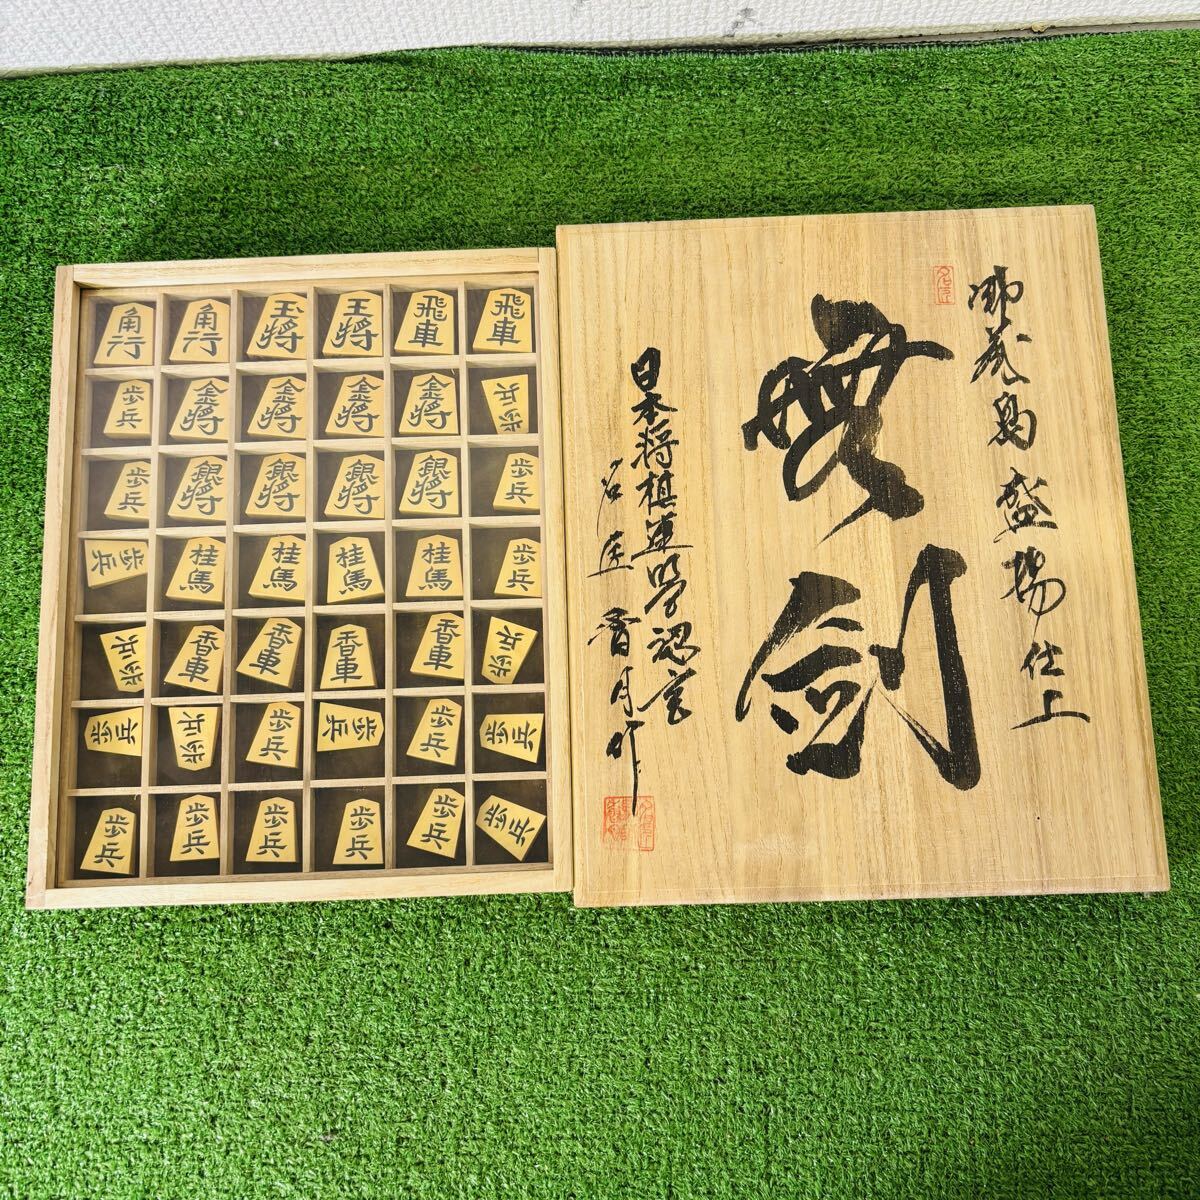 角行 角行 玉将 王将 飛車 飛車
歩兵 金将 金将 金将 金将 歩兵
歩兵 銀将 銀将 銀将 銀将 歩兵
歩兵 桂馬 桂馬 桂馬 桂馬 歩兵
歩兵 香車 香車 香車 香車 歩兵
歩兵 歩兵 歩兵 歩兵 歩兵 歩兵
歩兵 歩兵 歩兵 歩兵 歩兵 歩兵
御蔵島 盛揚仕上
無剣
日本将棋連盟認定
香月作